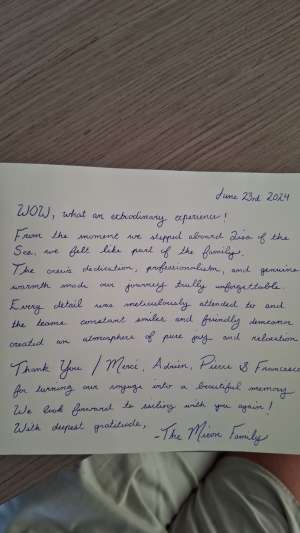 June 23rd 2024
WOW, what an extrodinary experience!
From the moment we stepped aboard Lisa of the
Sea, we felt like part of the family.
The crews dedication, professionalism, and genuine
warmth made our journey trully unforgettable.
Every detail was meticulously attended to and
the teams constant smiles and friendly demeanor
created an atmosphere of pure joy and relaxation
Thank You / Merci, Adrien, Pierre & Francesco
for turning our voyage into a beautiful memory
We look forward to sailing with you again!
With deepest gratitude,
-The Family